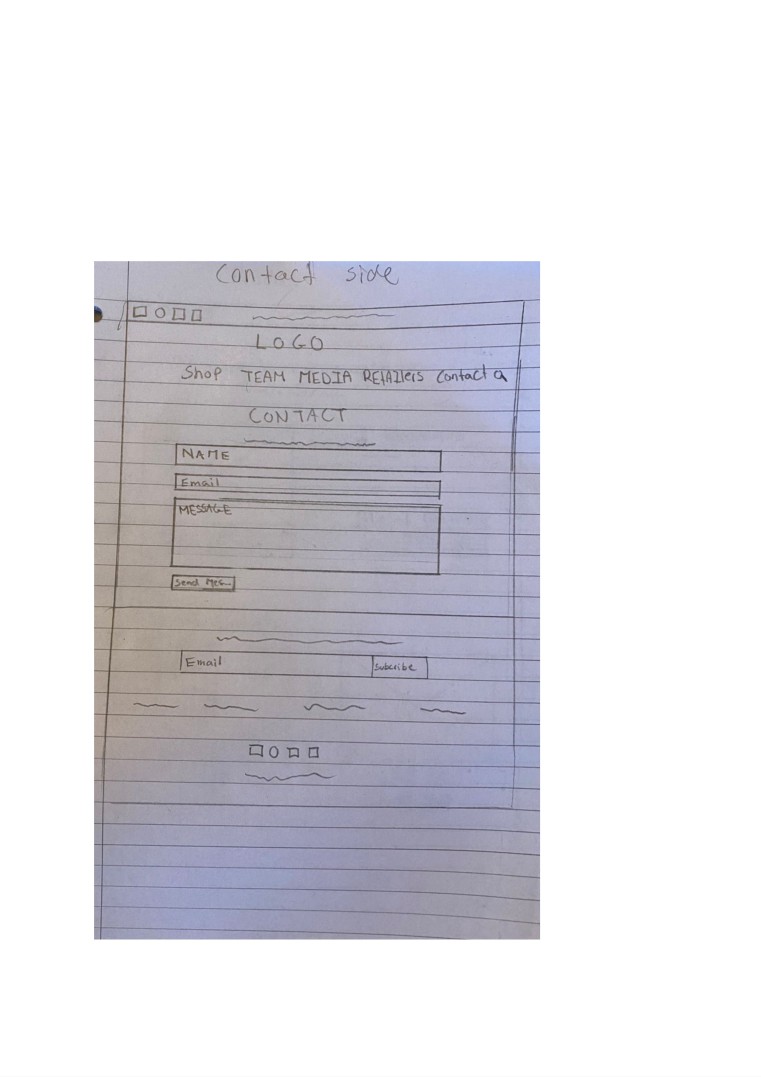 Contact side
LOGO
Shop TEAM MEDIA RETAILERS Contact
CONTACT
NAME
Email
MESSAGE
Send Mes
Email
Subcribe